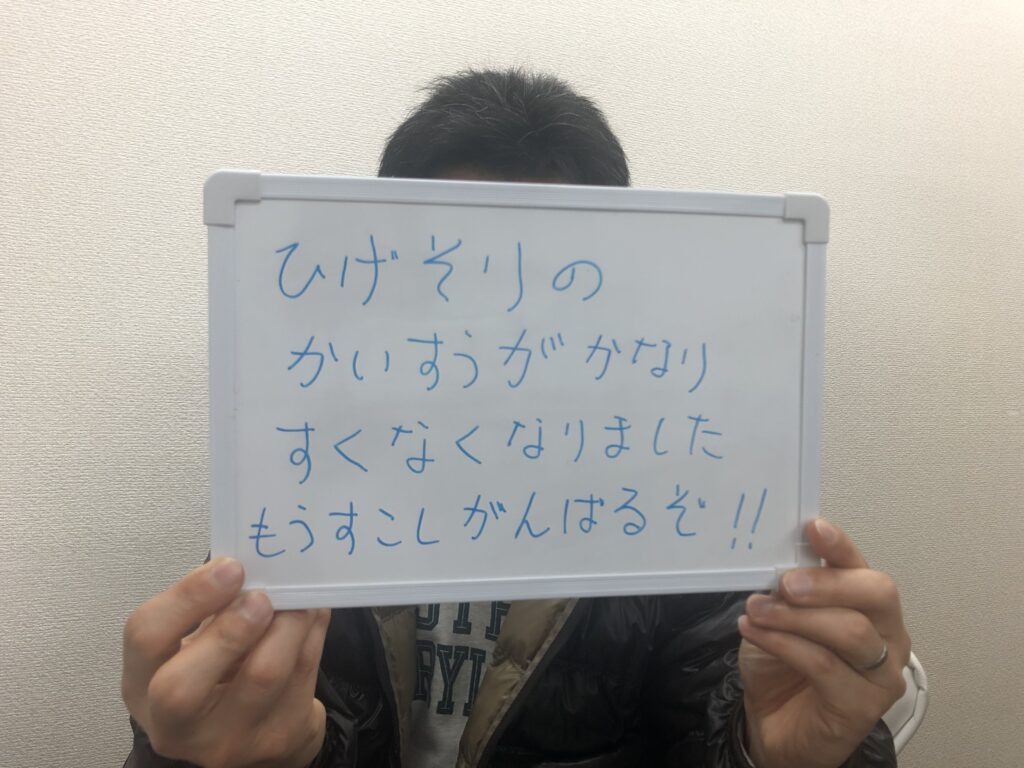 ひげそりの
かいすうがかなり
すくなくなりました
もうすこしがんばるぞ!!